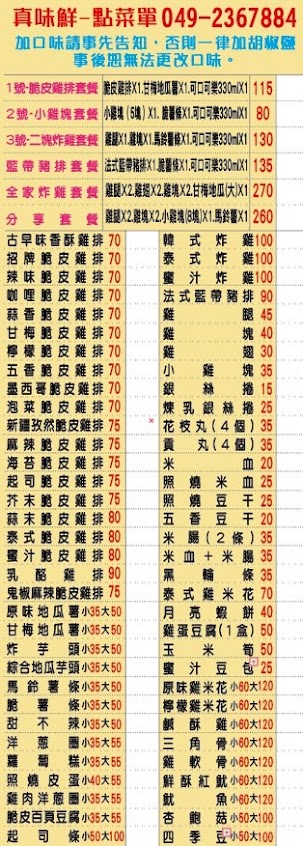 真味鮮-點菜單049-2367884
加口味請事先告知，否則一律加胡椒鹽
事後恕無法更改口味。
1號-脆皮雞排套餐 脆皮雞排X1.甘梅地瓜薯X1.可口可樂330mlX1 115
2號-小雞塊套餐 小雞塊(5塊)X1.脆薯條X1.可口可樂330mlX1 80
3號-二塊炸雞套餐 雞腿X1.雞塊X1.馬鈴薯條X1.可口可樂330mlX1 130
藍帶豬排套餐 法式藍帶豬排X1.脆薯條X1.可口可樂330mlX1 135
全家炸雞套餐 雞腿X2.雞翅X2.雞塊X2.甘梅地瓜(大)X1 270
分享套餐 雞腿X2.雞塊X2.小雞塊(8塊)X1.馬鈴薯X1 260
古早味香酥雞排 70
招牌脆皮雞排 70
辣味脆皮雞排 70
咖哩脆皮雞排 70
蒜香脆皮雞排 70
甘梅脆皮雞排 70
檸檬脆皮雞排 70
五香脆皮雞排 70
墨西哥脆皮雞排 70
泡菜脆皮雞排 70
新疆孜然脆皮雞排 75
麻辣脆皮雞排 75
海苔脆皮雞排 75
起司脆皮雞排 75
芥末脆皮雞排 75
蒜末脆皮雞排 80
泰式脆皮雞排 80
蜜汁脆皮雞排 80
乳酪雞排 90
鬼椒麻辣脆皮雞排 75
原味地瓜薯 小35大50
甘梅地瓜薯 小35大50
炸芋頭 小35大50
綜合地瓜芋頭 小35大50
馬鈴薯條 小35大50
脆薯條 小35大50
甜不辣 小35大50
洋蔥圈 小35大55
蘿蔔糕 小35大55
照燒皮蛋 小40大55
雞肉洋蔥圈 小35大55
脆皮百頁豆腐 小35大55
起司條 小50大100
韓式炸雞 100
泰式炸雞 100
蜜汁炸雞 100
法式藍帶豬排 90
雞腿 45
雞塊 40
雞翅 30
小雞塊 35
銀絲捲 15
煉乳銀絲捲 25
花枝丸(4個) 35
貢丸(4個) 35
米血 20
照燒米血 25
照燒豆干 25
五香豆干 20
米腸(2條) 35
米血+米腸 35
黑輪條 35
泰式雞米花 70
月亮蝦餅 40
雞蛋豆腐(1盒) 50
玉米筍 50
蜜汁豆包 25
原味雞米花 小60大120
檸檬雞米花 小60大120
鹹酥雞 小60大120
三角骨 小60大120
雞軟骨 小60大120
鮮酥紅魷 小60大120
魷魚 小60大120
杏鮑菇 小50大100
四季豆 小50大100